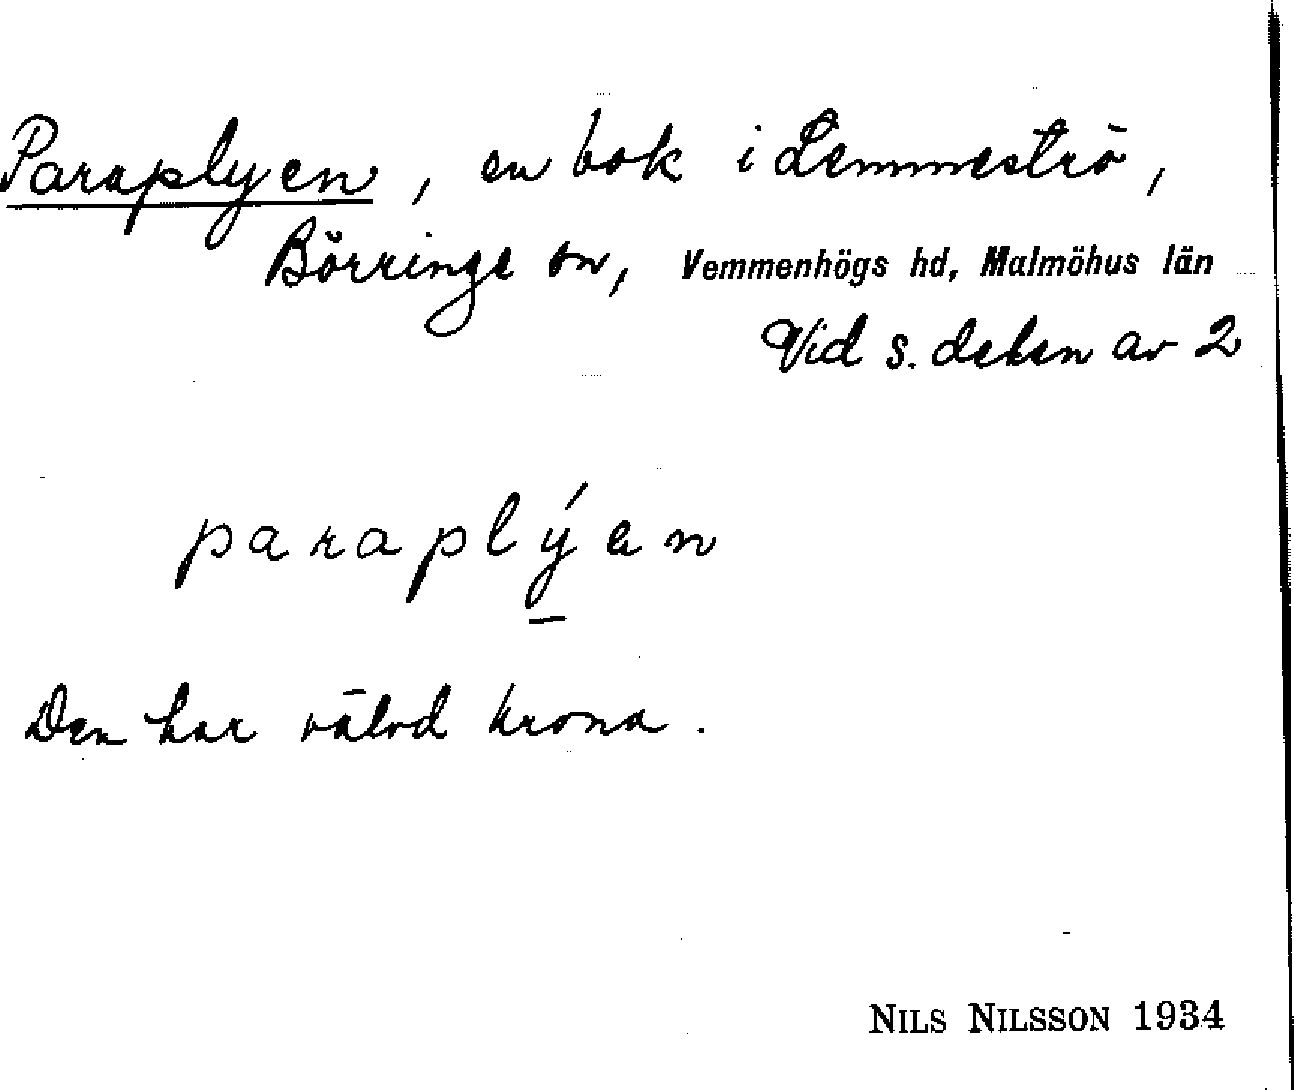 Paraplyen, en bok i Lemmeströ,
Börringe sn, Vemmenhögs hd, Malmöhus län
Vid s. delen av 2
paraplýen
Den har välvd krona.
NILS NILSSON 1934